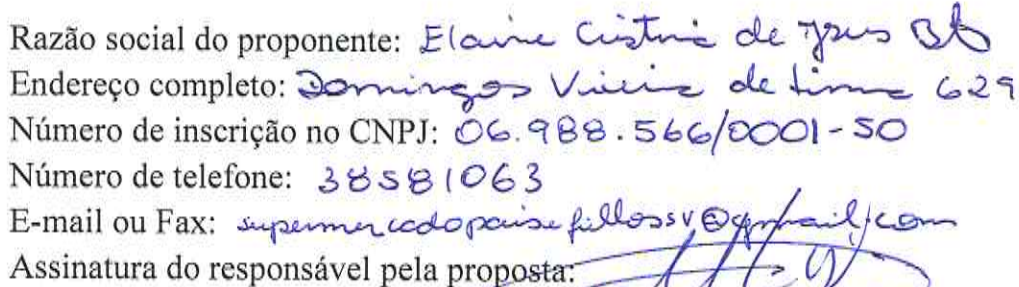 Razão social do proponente: Elaine Cristina de Jesus
Endereço completo: Domingos Vieira de Lima 629
Número de inscrição no CNPJ: 06.988.566/0001-50
Número de telefone: 38581063
E-mail ou Fax: supermercadopaisefilhossv@gmail.com
Assinatura do responsável pela proposta: